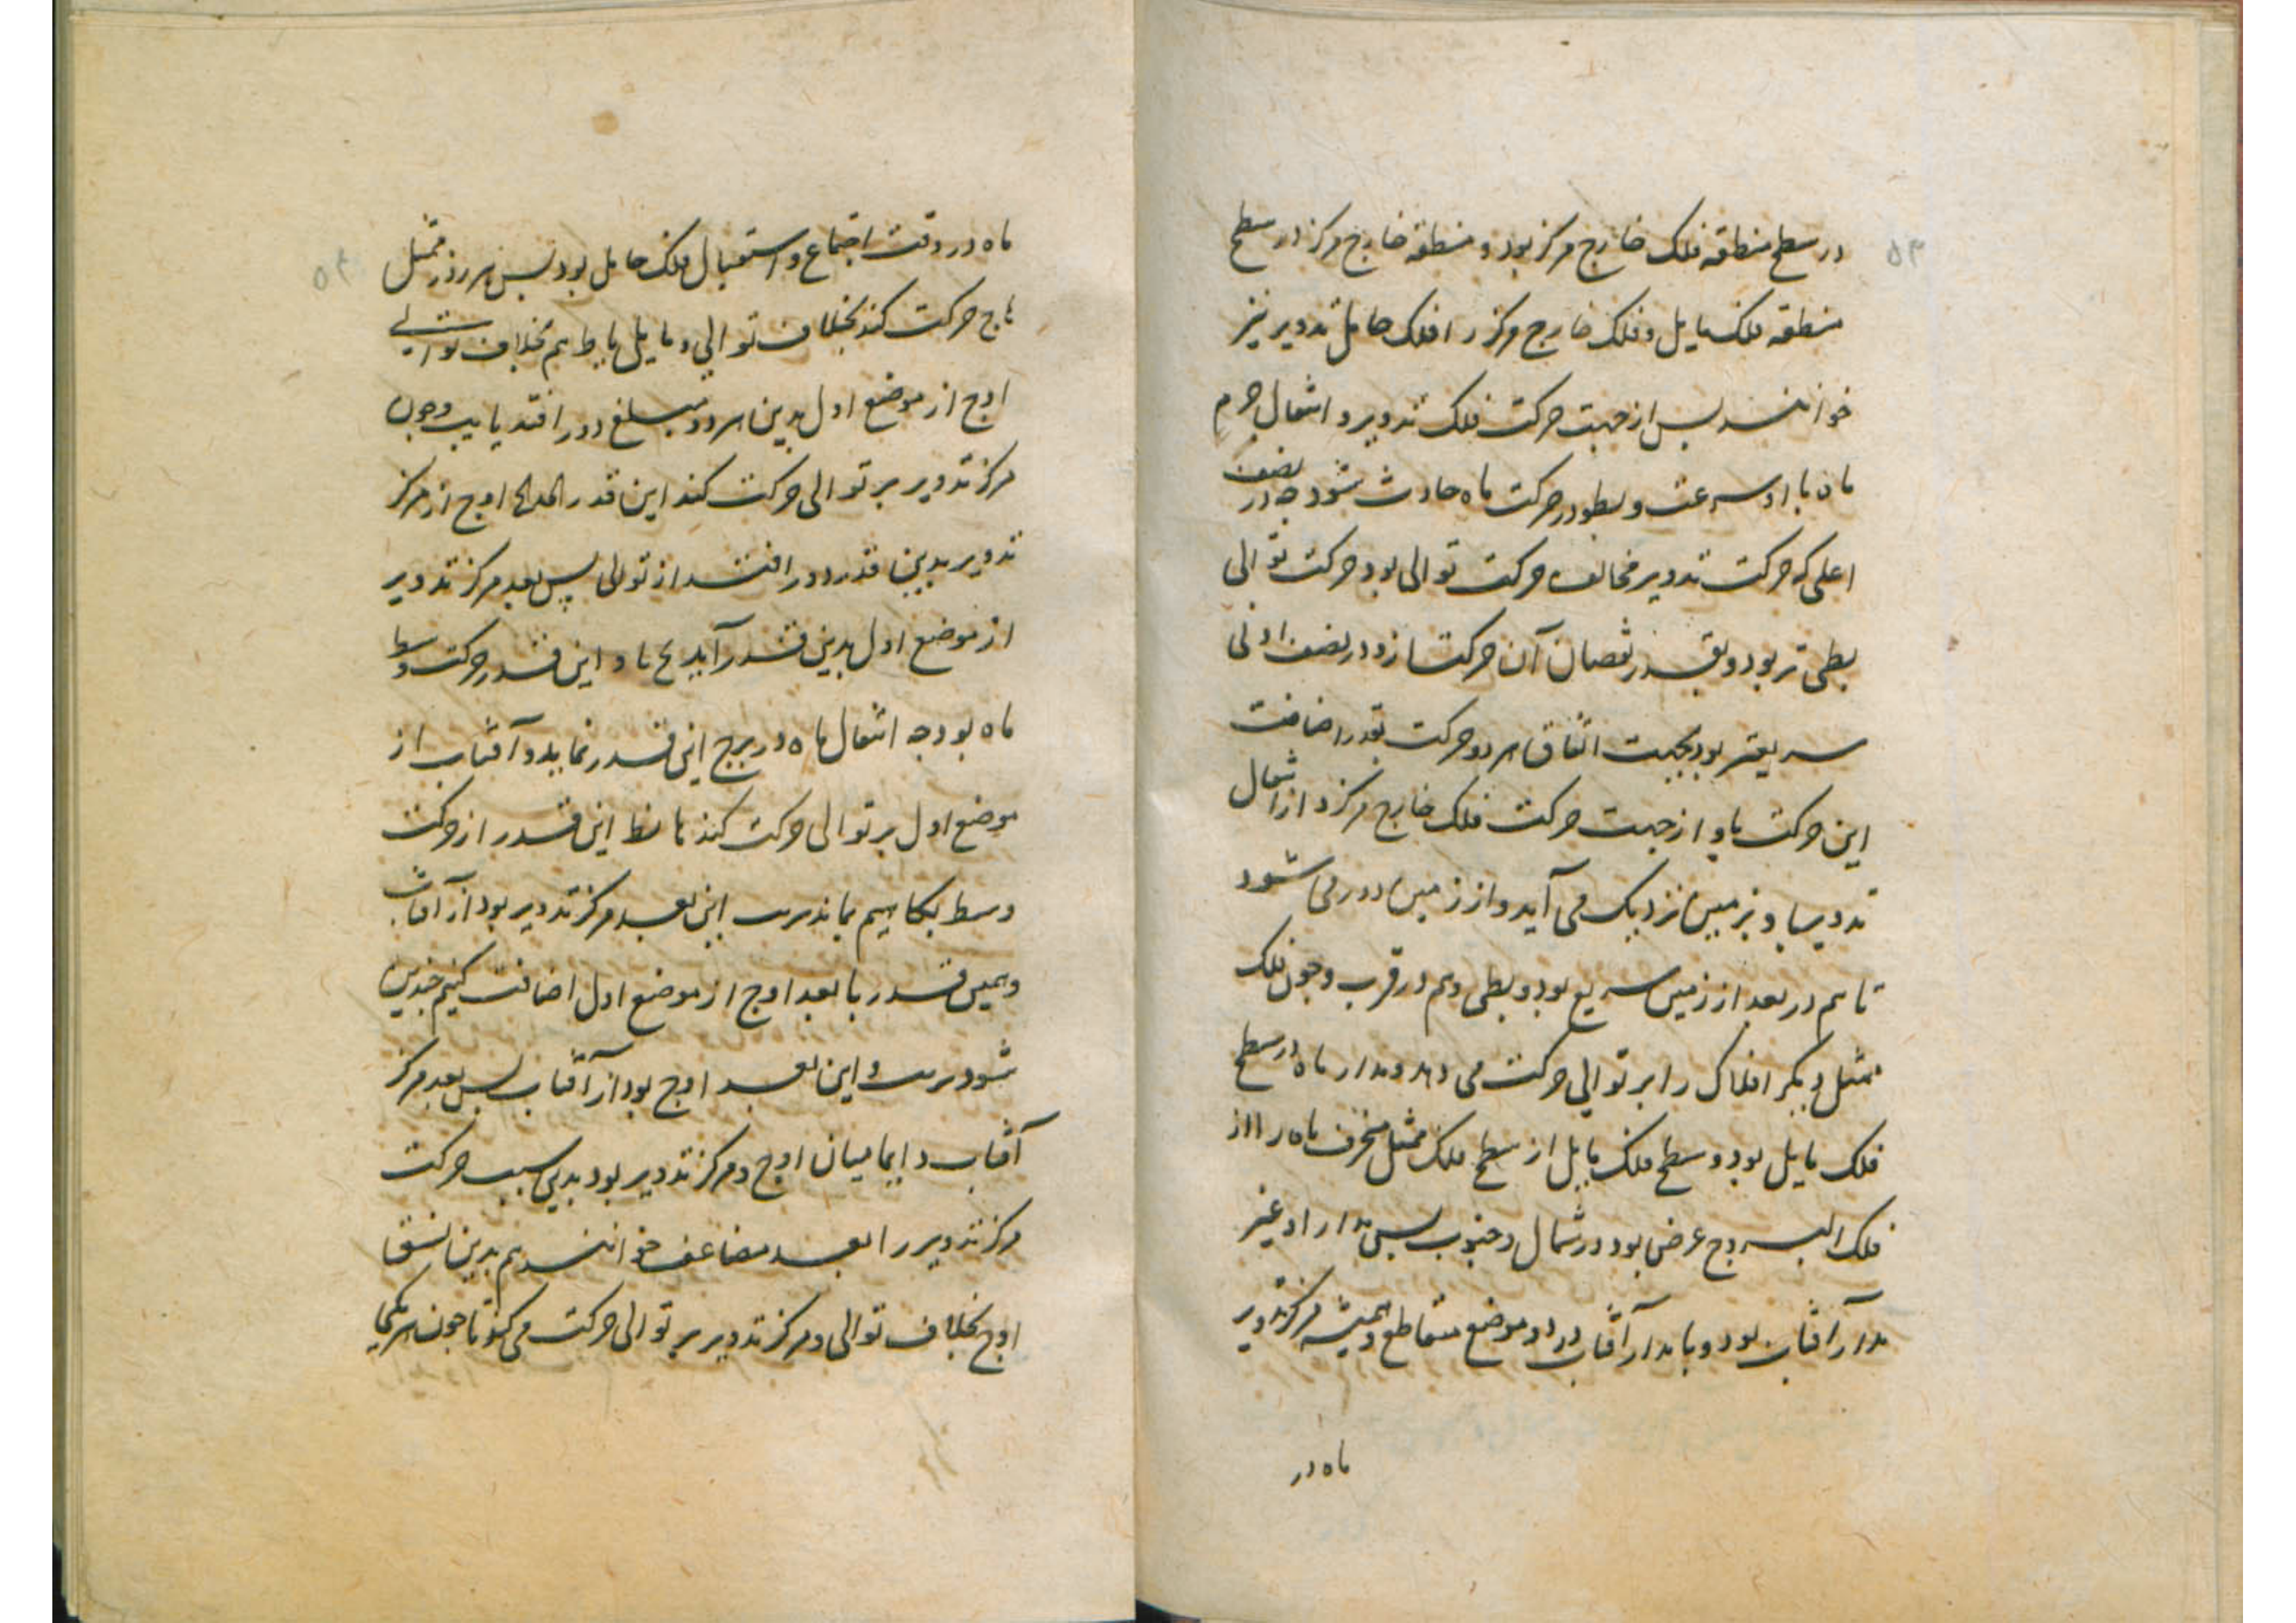 در سطح منطقه فلک خارج مرکز بود و منطقه خارج مرکز در سطح
منطقه فلک مایل و فلک خارج مرکز را فلک حامل تدویر نیز
خوانند پس از جهت حرکت فلک تدویر و انتقال جرم
ماه با او سرعت و بطو در حرکت ماه حادث شود چه در نصف
اعلی که حرکت تدویر مخالف حرکت توالی بود حرکت توالی
بطی تر بود و بقدر نقصان آن حرکت ازو و در نصف ادنی
سریعتر بود بجهت اتفاق هر دو حرکت بقدر اضافت
این حرکت باو و از جهت حرکت فلک خارج مرکز و انتقال
تدویر باو بزمین نزدیک می آید و از زمین دور می شود
تا هم در بعد از زمین سریع بود و بطی و هم در قرب و چون فلک
ممثل دیگر افلاک را بر توالی حرکت می دهد و مدار ماه در سطح
فلک مایل بود و سطح فلک مایل از سطح فلک ممثل منحرف ماه را از
فلک البروج عرضی بود در شمال و جنوب پس مدار او غیر
مدار آفتاب بود و با مدار آفتاب در دو موضع متقاطع و همیشه مرکز تدویر
ماه در
ماه در وقت اجتماع و استقبال فلک حامل بود پس هر روز ممثل
حرکت کند بخلاف توالی و مایل هم بخلاف توالی
اوج از موضع اول بدین هر دو مبلغ دور افتد و چون
مرکز تدویر بر توالی حرکت کند این قدر اوج از مرکز
تدویر بدین قدر دور افتد از توالی پس بعد مرکز تدویر
از موضع اول بدین قدر آید و این قدر حرکت وسط
ماه بود چه انتقال ماه در بروج این قدر نماید و آفتاب از
موضع اول بر توالی حرکت کند این قدر از حرکت
وسط بکاهیم بماند این بعد مرکز تدویر بود از آفتاب
و همین قدر با بعد اوج از موضع اول اضافت کنیم چندین
شود و این بعد اوج بود از آفتاب پس بعد مرکز
آفتاب دایما میان اوج و مرکز تدویر بود بدین سبب حرکت
مرکز تدویر را بعد مضاعف خوانند هم بدین نسق
اوج بخلاف توالی و مرکز تدویر بر توالی حرکت می کند تا چون هر یکی